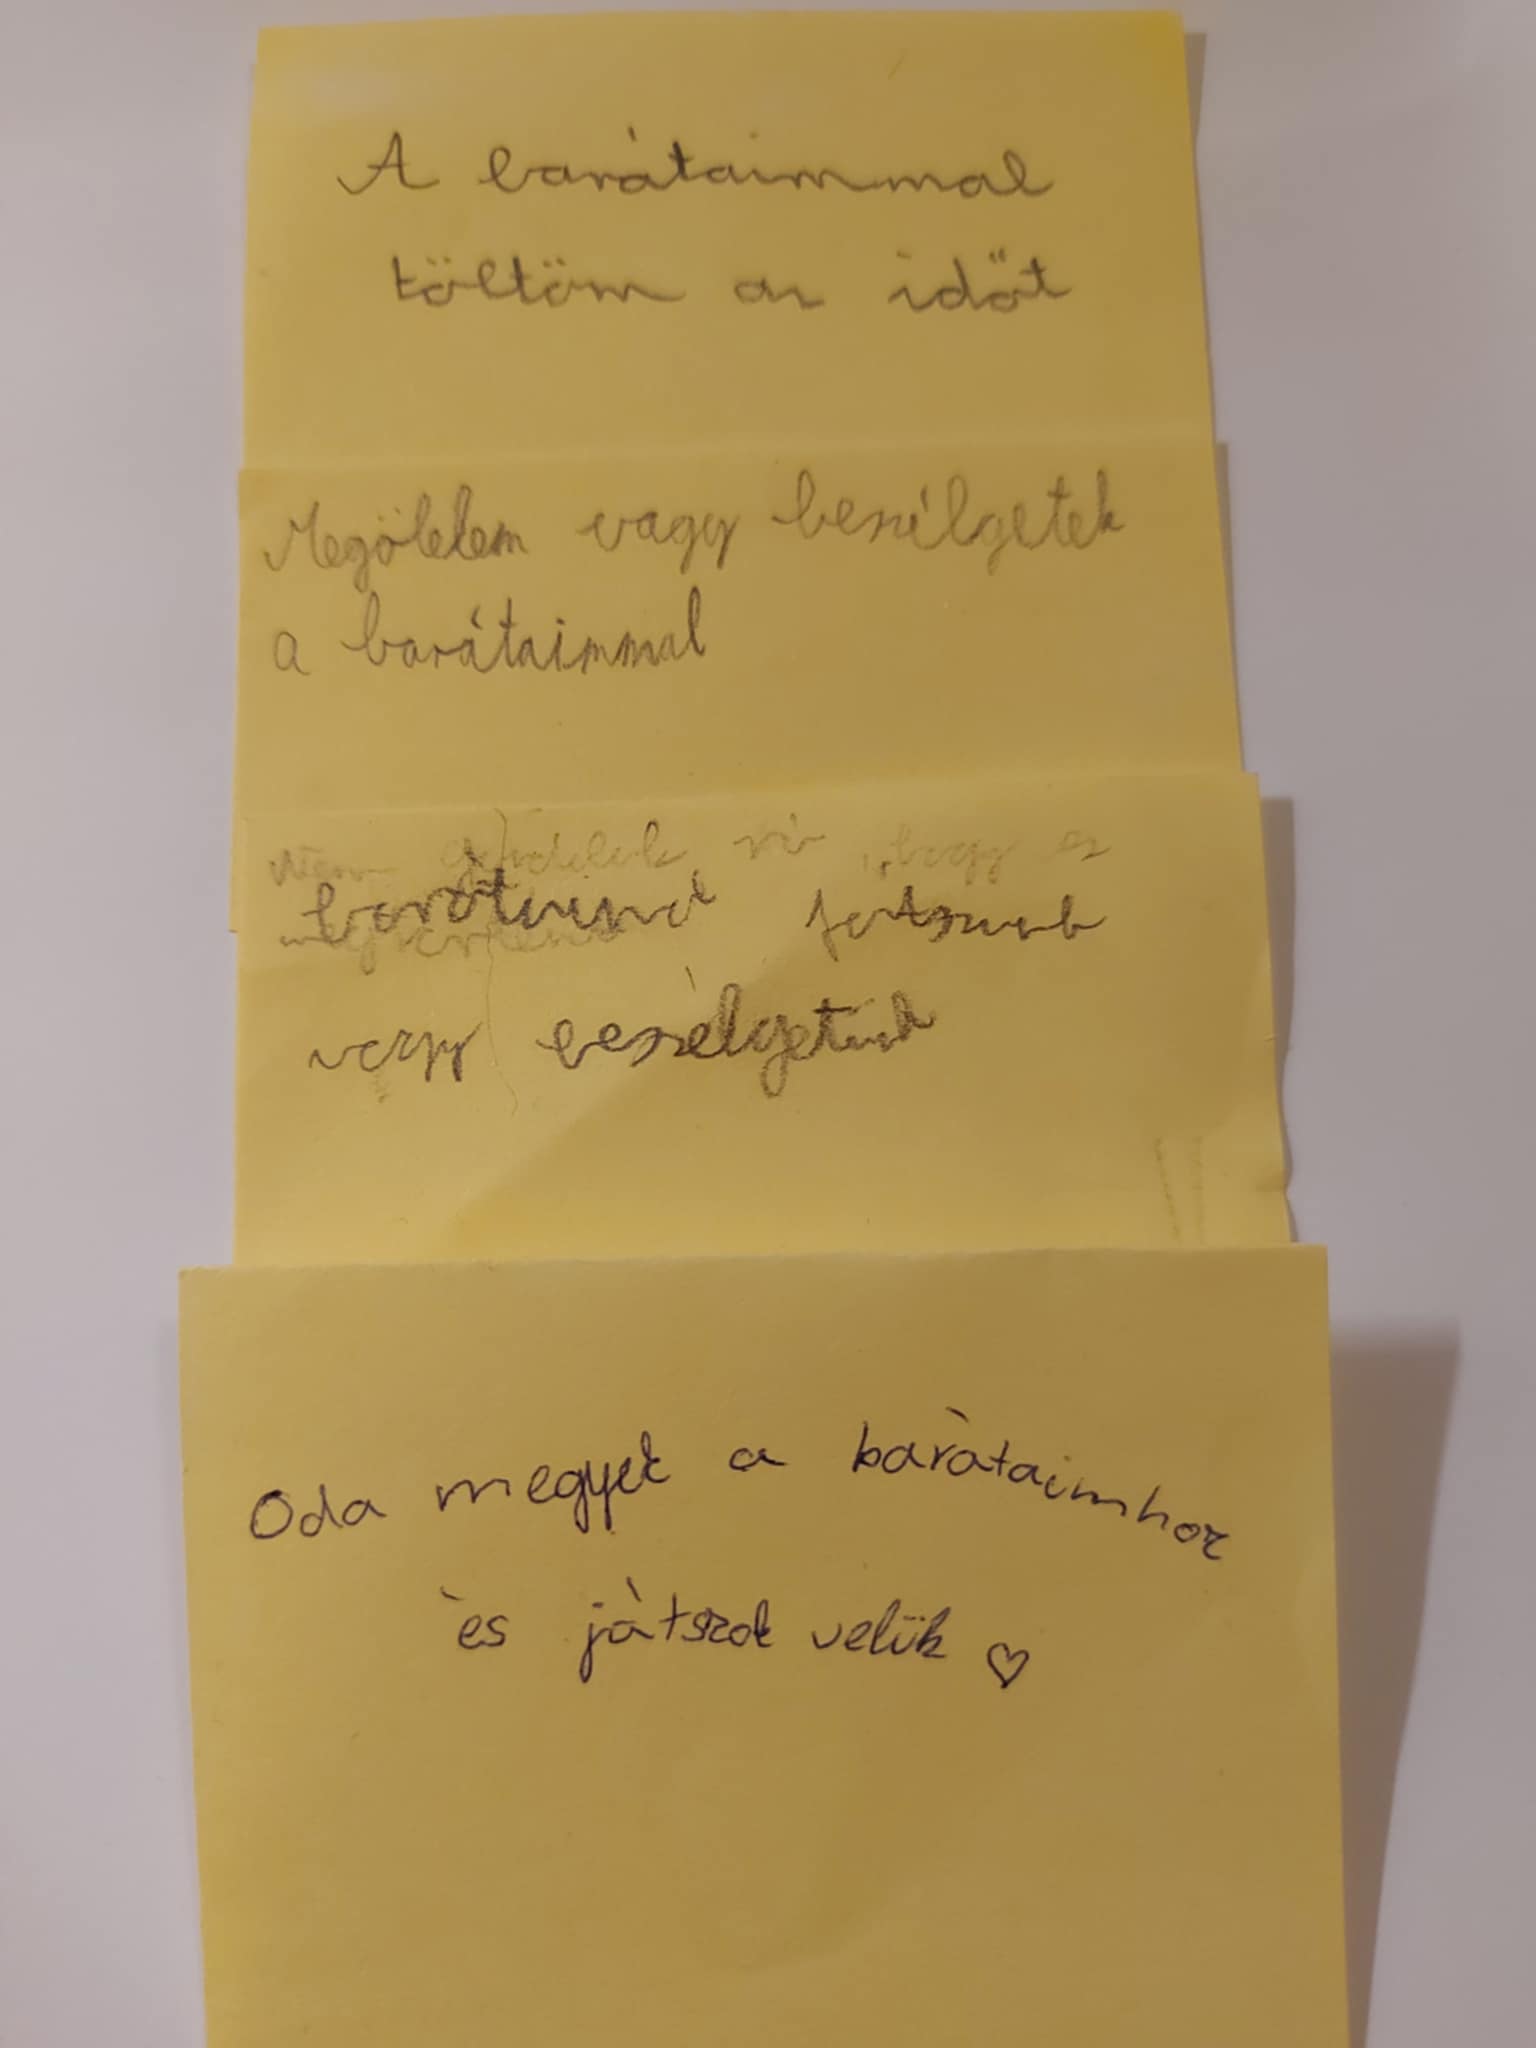 A barátaimmal
töltöm az időt
Megölelem vagy beszélgetek
a barátaimmal
hogy
vagy beszélgetünk
Oda megyek a baràtaimhoz
ès jàtszok velük ♡